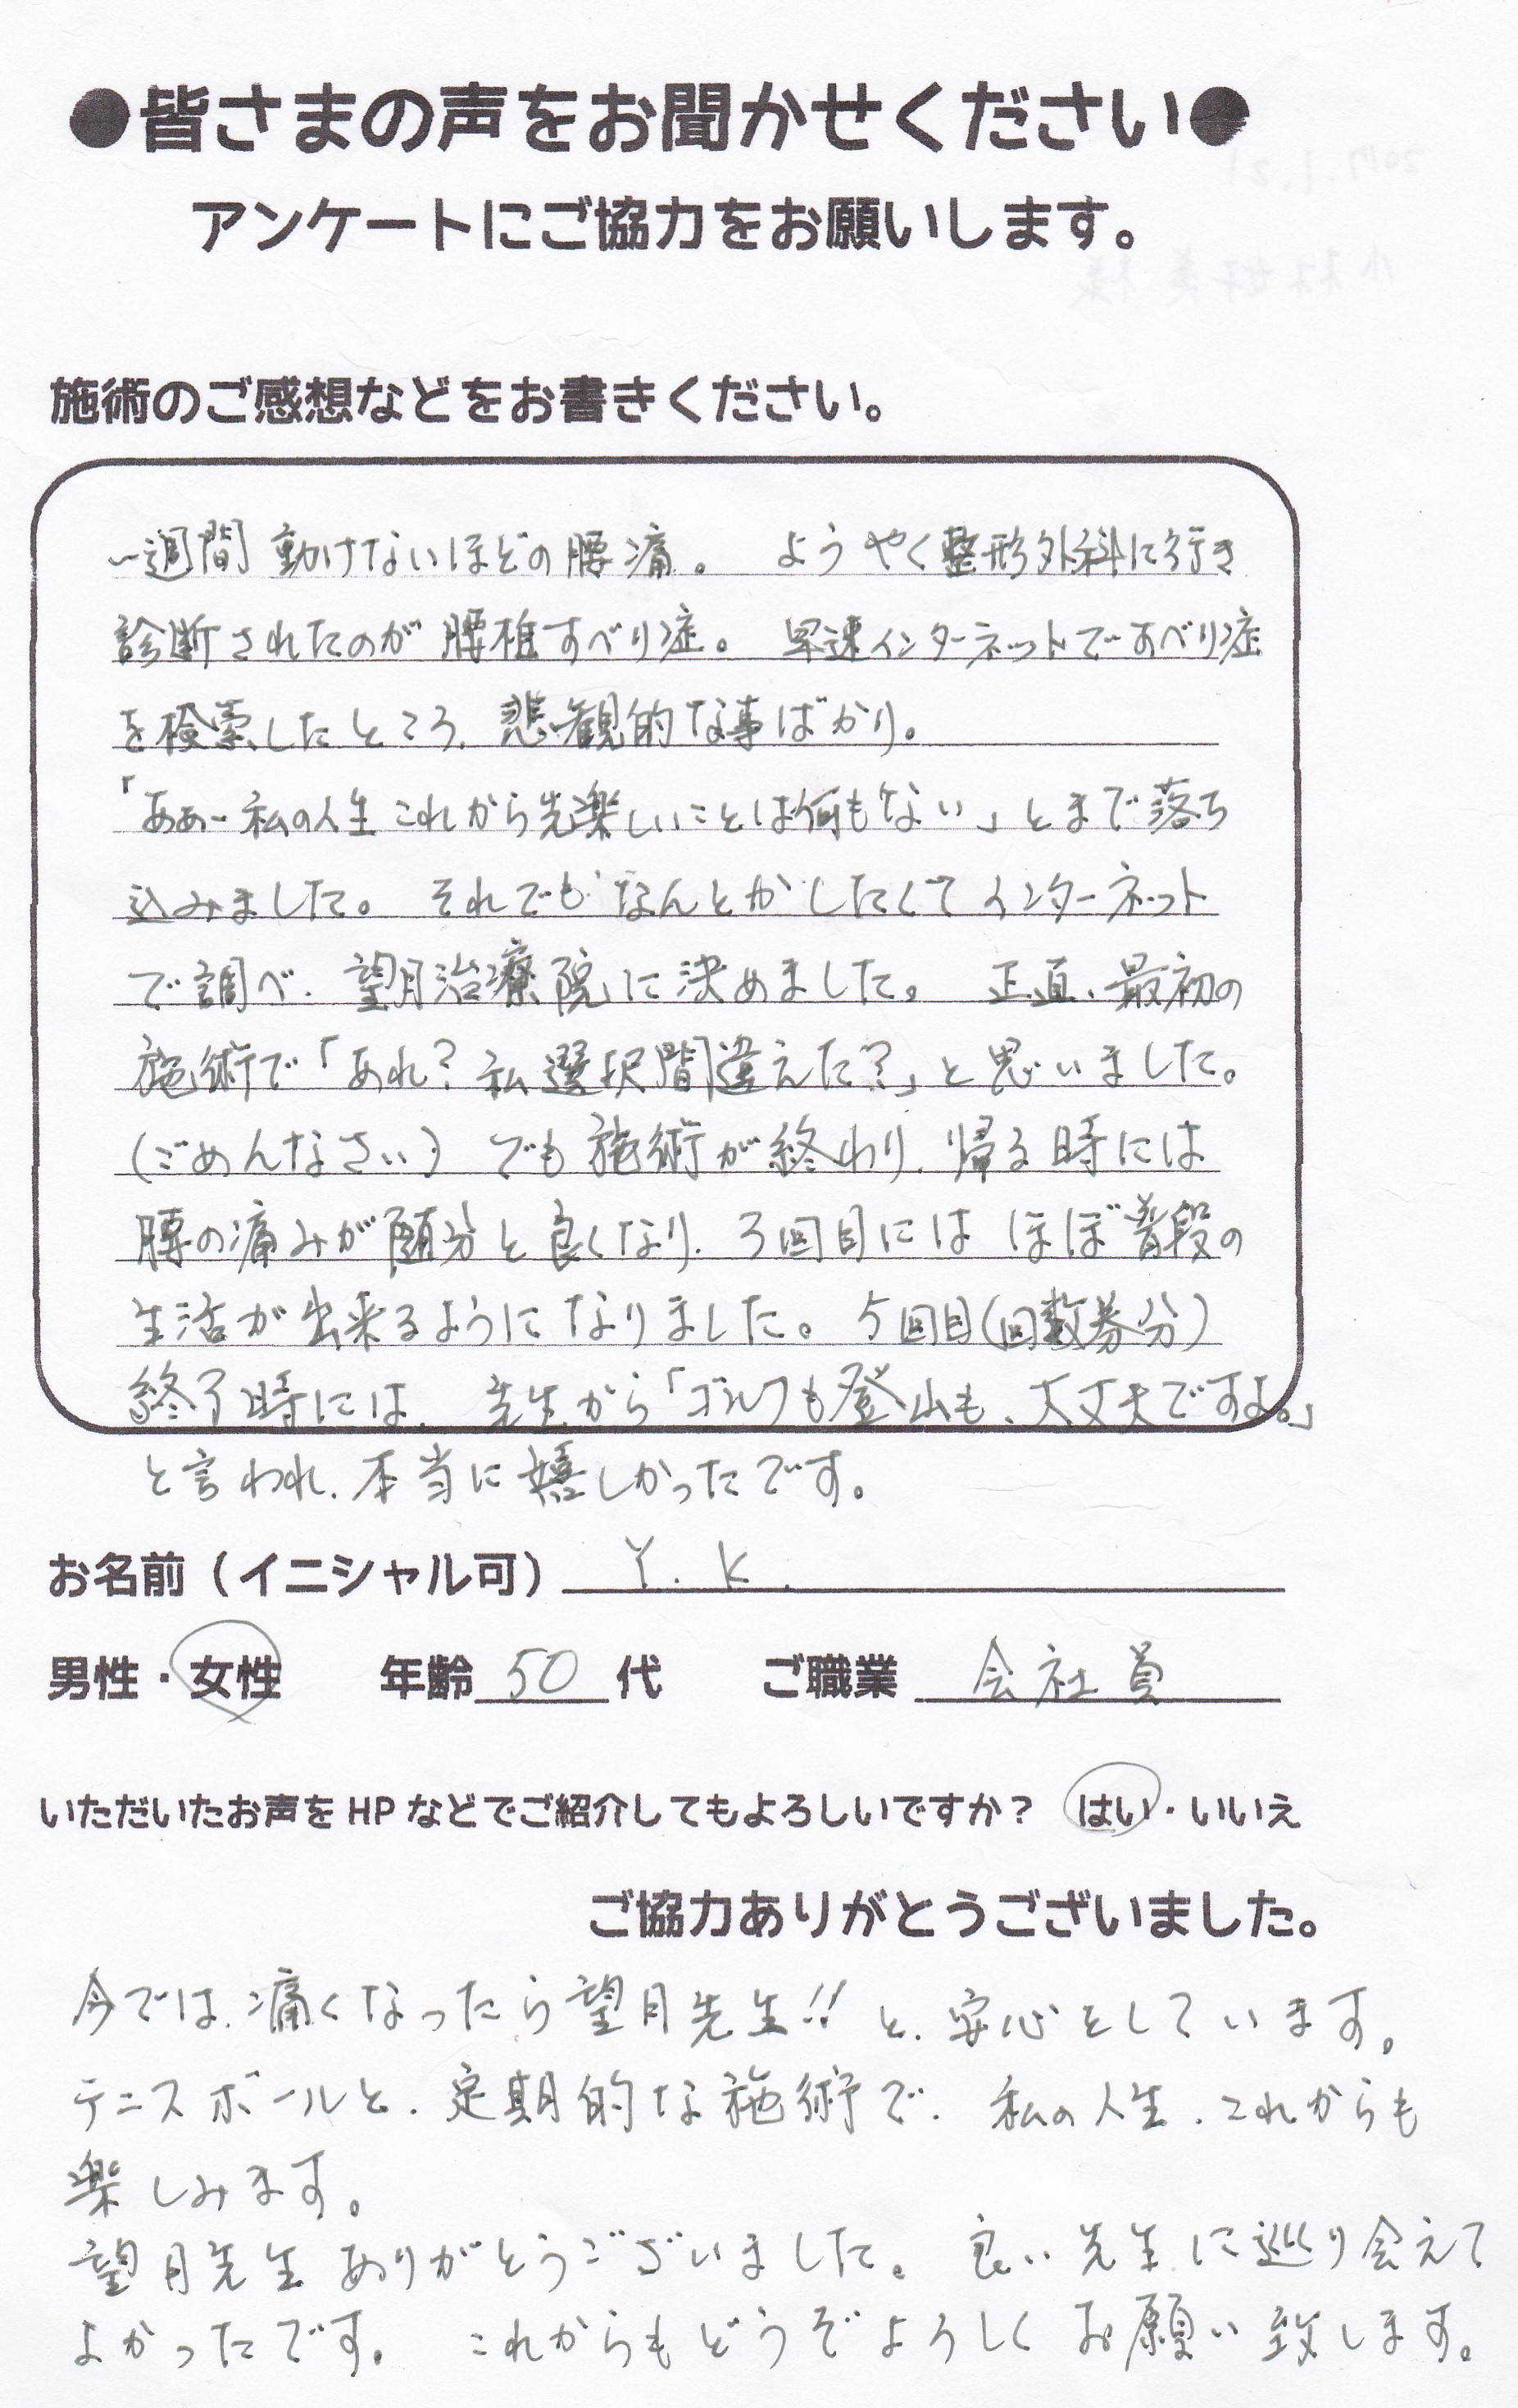 ●皆さまの声をお聞かせください●
アンケートにご協力をお願いします。
施術のご感想などをお書きください。
一週間動けないほどの腰痛。 ようやく整形外科に行き
診断されたのが腰椎すべり症。 早速インターネットですべり症
を検索したところ、悲観的な事ばかり。
「あぁー私の人生これから先楽しいことは何もない」とまで落ち
込みました。 それでもなんとかしたくてインターネット
で調べ、望月治療院に決めました。 正直、最初の
施術で「あれ?私選択間違えた?」と思いました。
(ごめんなさい) でも施術が終わり、帰る時には
腰の痛みが随分と良くなり、3回目にはほぼ普段の
生活が出来るようになりました。 5回目(回数券分)
終了時には、先生から「ゴルフも登山も、大丈夫ですよ。」
と言われ、本当に嬉しかったです。
お名前(イニシャル可) Y. K.
男性・女性 年齢 50 代 ご職業 会社員
いただいたお声をHPなどでご紹介してもよろしいですか? はい・いいえ
ご協力ありがとうございました。
今では、痛くなったら望月先生!!と、安心をしています。
テニスボールと、定期的な施術で、私の人生、これからも
楽しみます。
望月先生ありがとうございました。 良い先生に巡り会えて
よかったです。 これからもどうぞよろしくお願い致します。